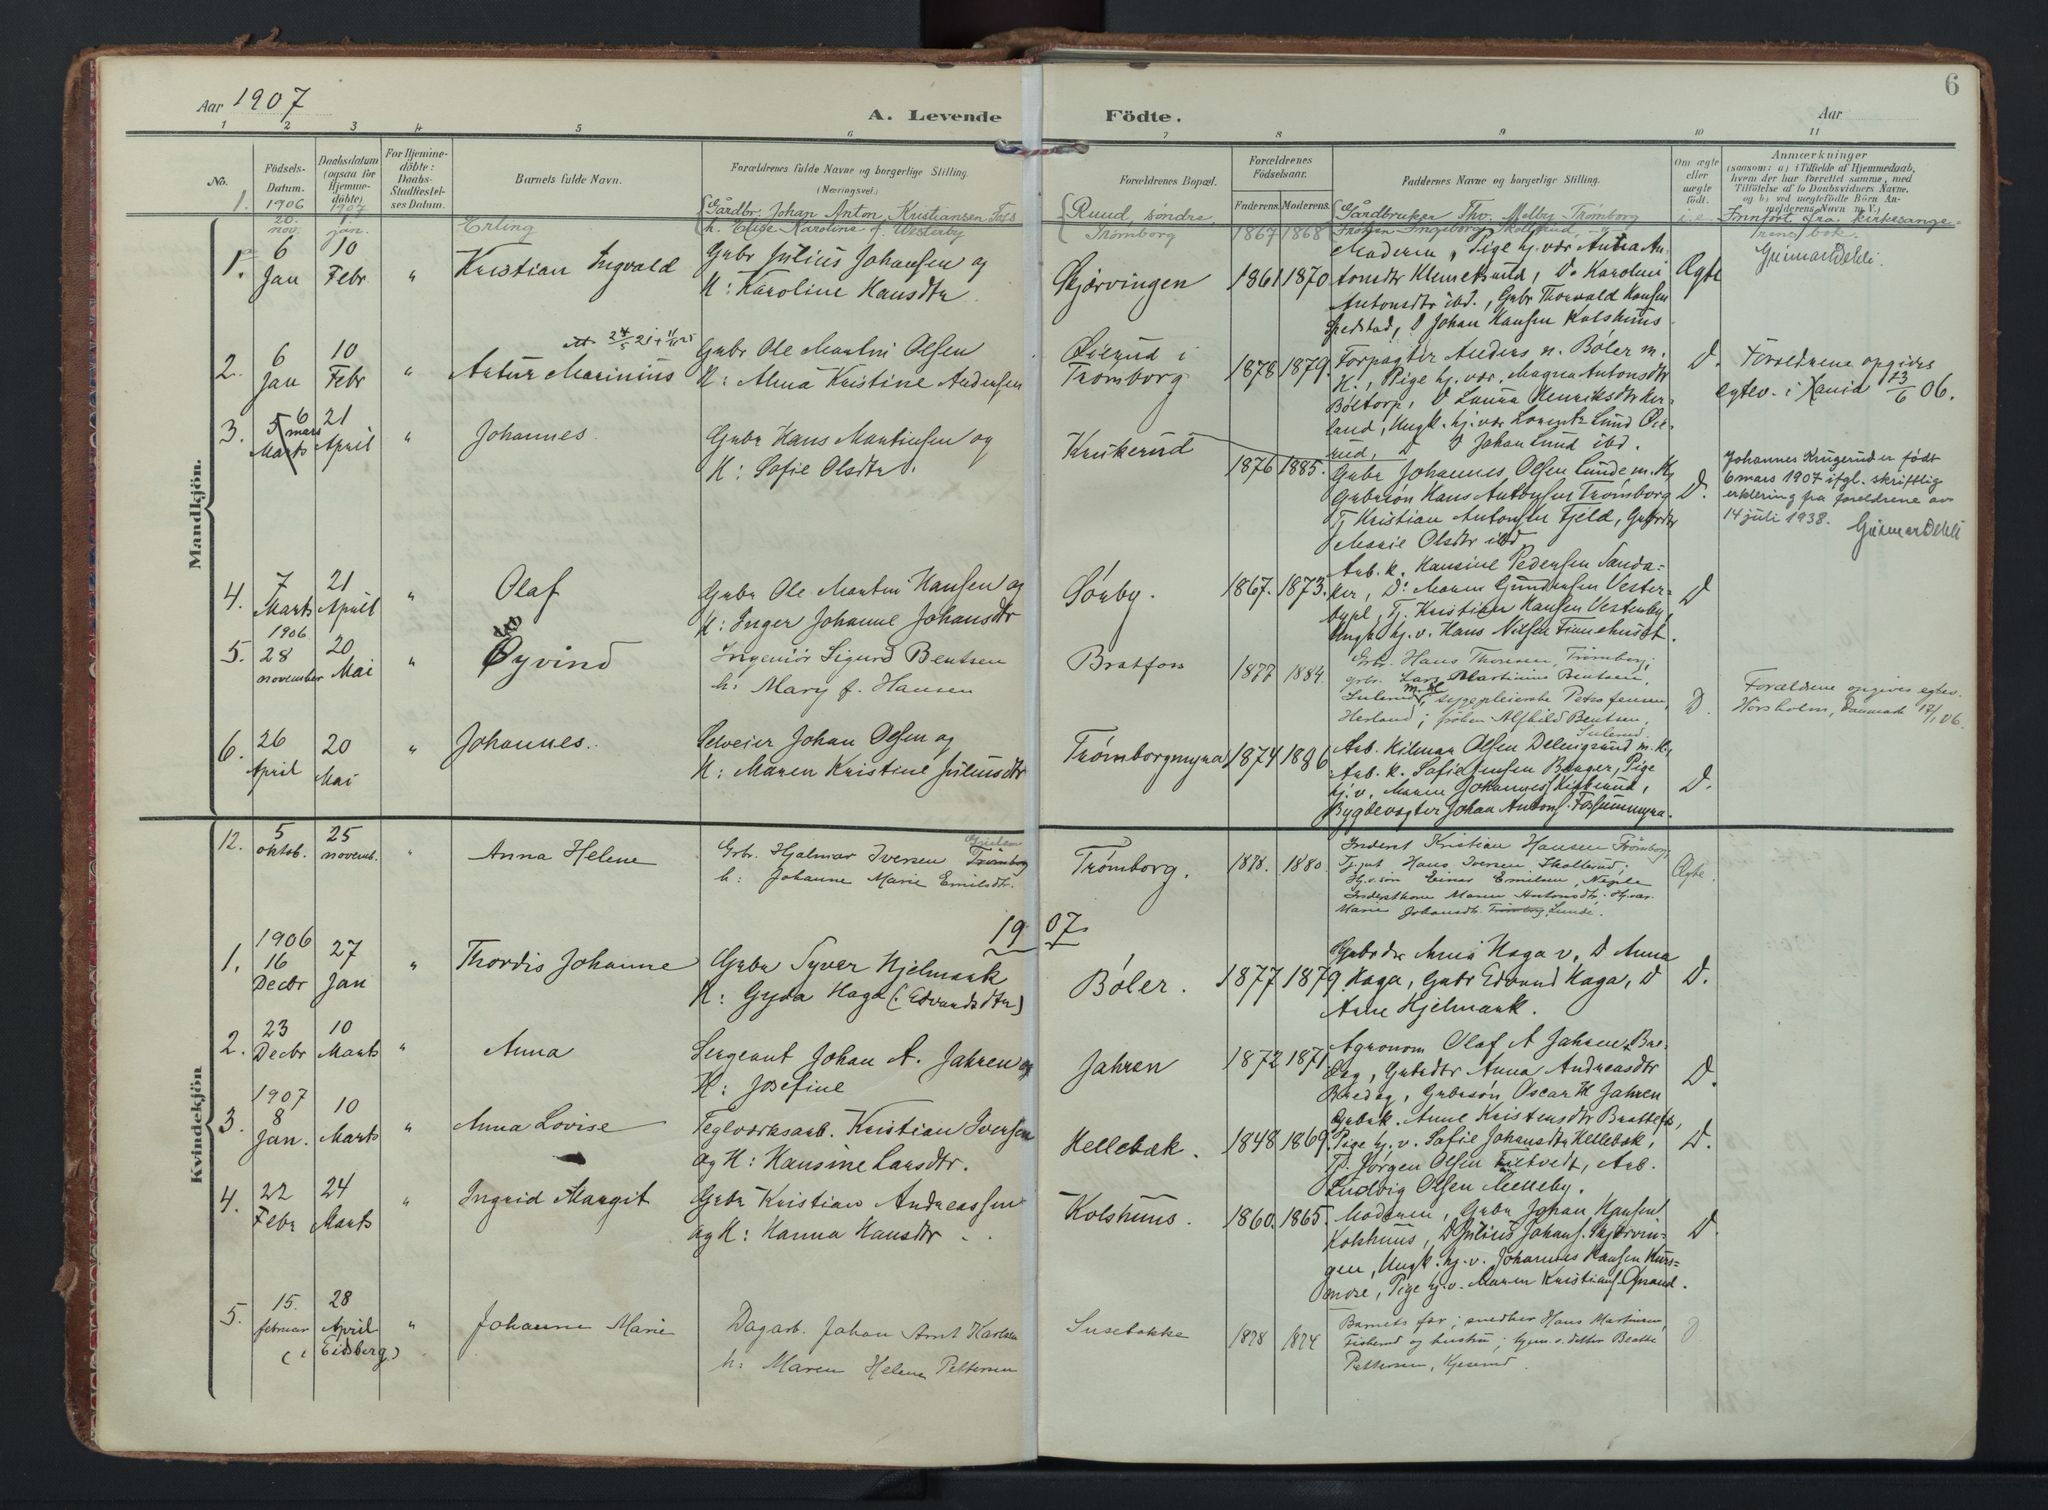 Aar 1907
A. Levende
Födte.
Aar
6
1 2 3 4 5 6 7 8 9 10 11
No.
Födsels-
Datum.
1906
Daabsdatum
(ogsaa for
Hjemme-
döbte)
1907
For Hjemme-
döbte:
Daabs-
Stadfæstel-
ses Datum.
Barnets fulde Navn.
Forældrenes fulde Navne og borgerlige Stilling.
(Næringsvei.)
Forældrenes Bopæl.
Forældrenes
Födselsaar.
Faderens. Moderens.
Faddernes Navne og borgerlige Stilling.
Om ægte
eller
uægte
födt.
Anmærkninger
(saasom: a) i Tilfælde af Hjemmedaab,
hvem der har forrettet samme, med
Tilföielse af to Daabsvidners Navne.
og b) ved uægtefödte Börn An-
melderens Navn m. V.)
Mandkjön.
1. 20. nov. 1. jan. Erling
Gårdbr. Johan Anton Kristiansen
h. Elise Karoline f. Westerby
Ruud, søndre
Trømborg
1867 1868
Gårdbruker Thv. Melby Trømborg
Innført fra kirkesange-
rens bok.
Geirmar Dehli.
1. 6 Jan 10 Febr „ Kristian Ingvald
Gubr Julius Johansen og
K: Karoline Hansdtr
Skjørvingen 1861 1870
Moderen, Pige hj. vær Antna An-
tonsdtr Klemetsrud, Do Karoline
Antonsdtr ibd., Gubr Thorvald Hansen
Spedstad, D Johan Hansen Kolshuus
Ægte
2. 6 Jan 10 Febr „ Artur Marinius
Gubr Ole Martin Olsen
K: Alma Kristine Andersen
Øierud i
Trømborg
1878 1879.
Forpagter Anders n. Bøler m.
K., Pige hj. vær. Magna Antonsdtr
Bøltorp, D Laura Henriksdtr Her-
land, Ungk. hj. vær Lorentz Lund Øie-
rud, D D Johan Lund ibd.
D.
Foreldrene opgives
egtev. i Xania 13/6 06.
3. 5 Marts 6 mars 21 April „ Johannes.
Gubr Hans Martinsen og
K: Sofie Olsdtr.
Krukerud
1876 1885.
Gubr Johannes Olsen Lunde m. K,
Gubrsøn Hans Antonsen Trømborg
Tj Kristian Antonsen Fjeld, Gubrdtr
Marie Olsdtr ibd
D.
Johannes Krugerud er født
6 mars 1907 ifgl. skriftlig
erklering fra foreldrene av
14 juli 1938. Geirmar Dehli
4. 7 Marts 21 April „ Olaf
Gubr Ole Martin Hansen og
K: Inger Johanne Johansdtr
Sørby. 1867. 1873.
Arb. k. Hansine Pedersen Sanda-
ker, D: Maren Gundersen Vester-
bypl, Tj. Kristian Hansen Vestenby,
Ungk hj. v. Hans Nilsen Finnehuset.
D
5. 1906 28 november 20 Mai „ Øyvind
Ingeniør Sigurd Bentsen
h: Mary f. Hansen
Bratfoss 1877 1884.
Grb. Hans Thoresen, Trømborg;
grb. Lars Martinius Bentsen,
Sulerud m. H, sygepleierske Petra Jensen,
Herland; frøken Alfhild Bentsen,
Sulerud.
D.
Forældrene opgives egtev.
Hørsholm, Danmark 17/1 06.
6. 26 April 20 Mai „ Johannes.
Selveier Johan Olsen og
K: Maren Kristine Juliusdtr
Trømborgmyra 1874 1886
Arb. Hilmar Olsen Delingsrud m. K,
Arb. k. Sofie Jensen Berger, Pige
hj. v. Maren Johannes Kirkerud,
Bygdevagter Johan Antons. Fossummyra.
D.
Kvindekjön
12. 5 oktob. 25 novemb. „ Anna Helene
Grbr. Hjalmar Iversen Trømborg
h: Johanne Marie Emilsdtr.
Trømborg. 1878. 1880.
Inderst Kristian Hansen Trømborg
Tjgut Hans Iversen Skollerud;
Hj. v. søn Einar Emilsen, Negle
Inderstkone Maren Antonsdtr. Hj. vær.
Marie Johansdtr. Trømborg, Lunde.
Ægte.
1907.
1. 1906 16 Decbr 27 Jan „ Thordis Johanne
Gubr Syver Hjelmark
K: Gyda Haga (Edvardsdtr)
Bøler. 1877 1879
Gubrdtr Anna Haga v. D Anna
Haga, Gubr Edvard Haga, D
Arne Hjelmark.
D.
2. 23 Decbr 10 Marts „ Anna
Sergeant Johan A. Jahren og
K: Josefine
Jahren 1872 1871
Agronom Olaf A Jahren, Bre-
deg, Gubrdtr Anna Andreasdtr
Bredeg, Gubrsøn Oscar H Jahren
D.
3. 1907 8 Jan. 10 Marts „ Anna Lovise
Teglværksarb. Kristian Iversen
og K: Hansine Larsdtr.
Hellebæk. 1848 1869
Gubrk. Anne Kristensdtr Brattefos,
Pige hj. v. Sofie Johansdtr Hellebæk,
Tj. Jørgen Olsen Filtvedt, Arb.
Ludvig Olsen Melleby.
D.
4. 22 Febr 24 Marts „ Ingrid Margit
Gubr Kristian Andreassen
og K: Hanna Hansdtr.
Kolshuus. 1860. 1865.
Moderen, Gubr Johan Hansen
Kolshuus, D Julius Johans. Skjørvin-
gen, Ungk. hj. v. Johannes Hansen
Pige hj. v. Maren Kristians.
D.
5. 15. februar 28 April (i Eidsberg) „ Johanne Marie
Dagarb. Johan Arnt Karlsen
h: Maren Helene Pettersen
Susebakke 1878 1874
Barnets far; snedker Hans Martinsen,
Fiskerud og hustru; hjem. v. datter Beatke
Pettersen, Kjeserud.
D